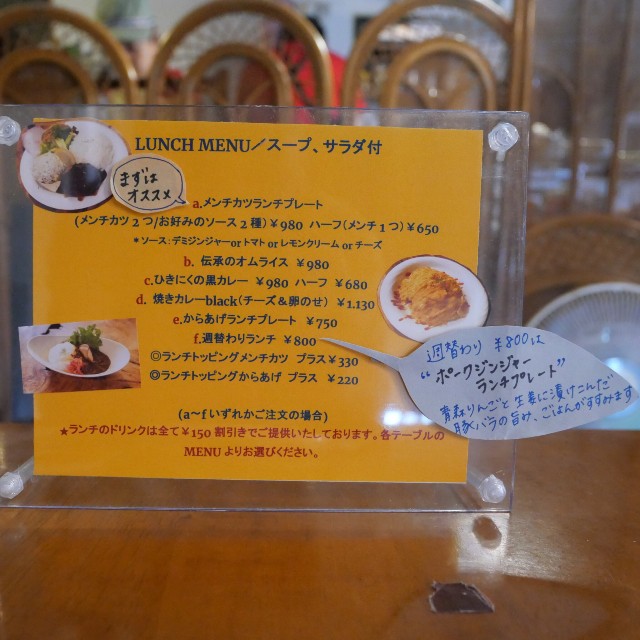 LUNCH MENU／スープ、サラダ付
まずは
オススメ
a.メンチカツランチプレート
(メンチカツ２つ/お好みのソース２種)￥980 ハーフ(メンチ１つ)￥650
＊ソース:デミジンジャーor トマト or レモンクリーム or チーズ
b. 伝承のオムライス ￥980
c.ひきにくの黒カレー ￥980 ハーフ ￥680
d. 焼きカレーblack(チーズ＆卵のせ) ￥1.130
e.からあげランチプレート ￥750
f.週替わりランチ ￥800
◎ランチトッピングメンチカツ プラス￥330
◎ランチトッピングからあげ プラス ￥220
(a～f いずれかご注文の場合)
★ランチのドリンクは全て￥150 割引きでご提供いたしております。各テーブルの
MENU よりお選びください。
週替わり ￥800は
“ポークジンジャー
ランチプレート”
青森りんごと生姜に漬けこんだ
豚バラの旨み、ごはんがすすみます